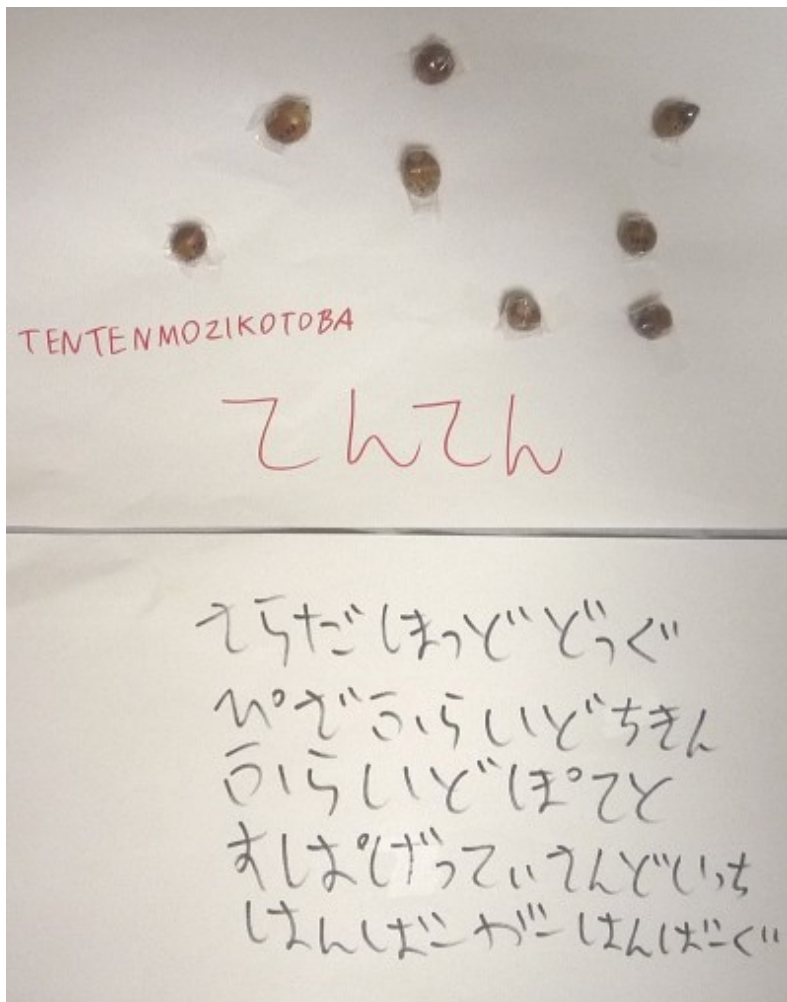 TENTENMOZIKOTOBA
てんてん
さらだほっどどっぐ
ぴざふらいどちきん
ふらいどぽてと
すぱげってぃさんどいっち
はんばーがーはんばーぐ